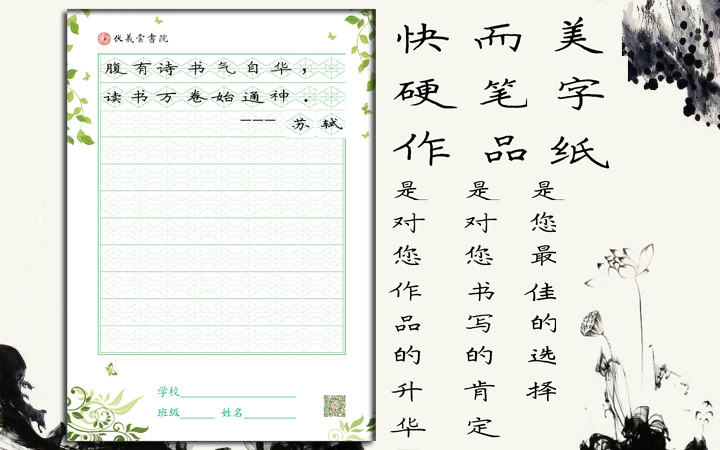 伏羲雲書院
腹有诗书气自华，
读书万卷始通神．
——— 苏轼
学校
班级 姓名
快而美
硬笔字
作品纸
是您最佳的选择
是对您书写的肯定
是对您作品的升华